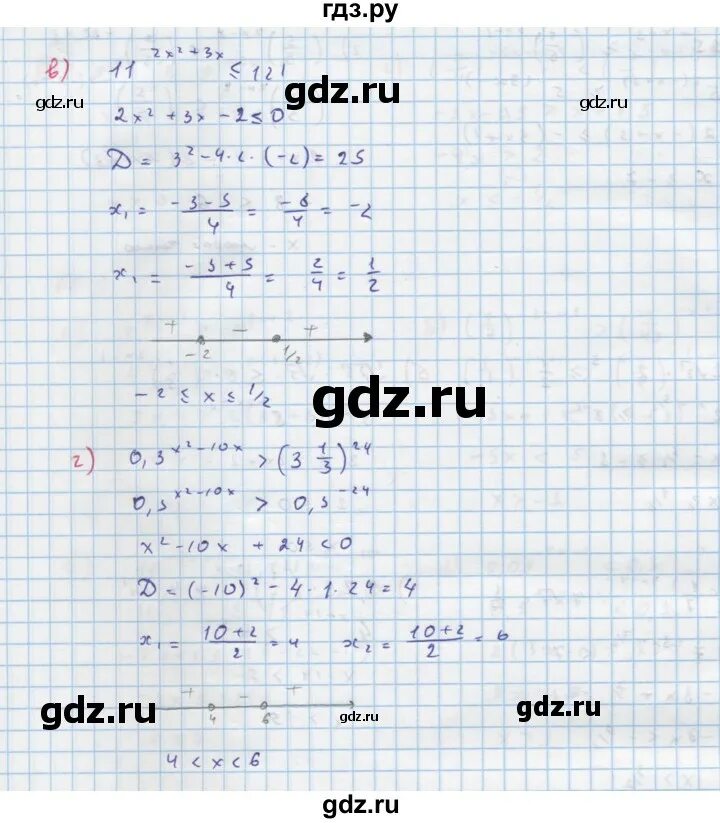 гдз.ру
в) 11^(2x²+3x) ≤ 121
gdz.ru
gdz.ru
gdz.ru
2x² + 3x - 2 ≤ 0
D = 3² - 4 · 2 · (-2) = 25
x₁ = (-3-5)/4 = (-8)/4 = -2
x₁ = (-3+5)/4 = 2/4 = 1/2
+ - +
-2 1/2
-2 ≤ x ≤ 1/2
gdz.ru
г) 0,3^(x²-10x) > (3 1/3)^24
0,3^(x²-10x) > 0,3^(-24)
x² - 10x + 24 < 0
D = (-10)² - 4 · 1 · 24 = 4
x₁ = (10+2)/2 = 4 x₂ = (10+2)/2 = 6
+ - +
gdz.ru
gdz.ru
gdz.ru
4 6
4 < x < 6
gdz.ru